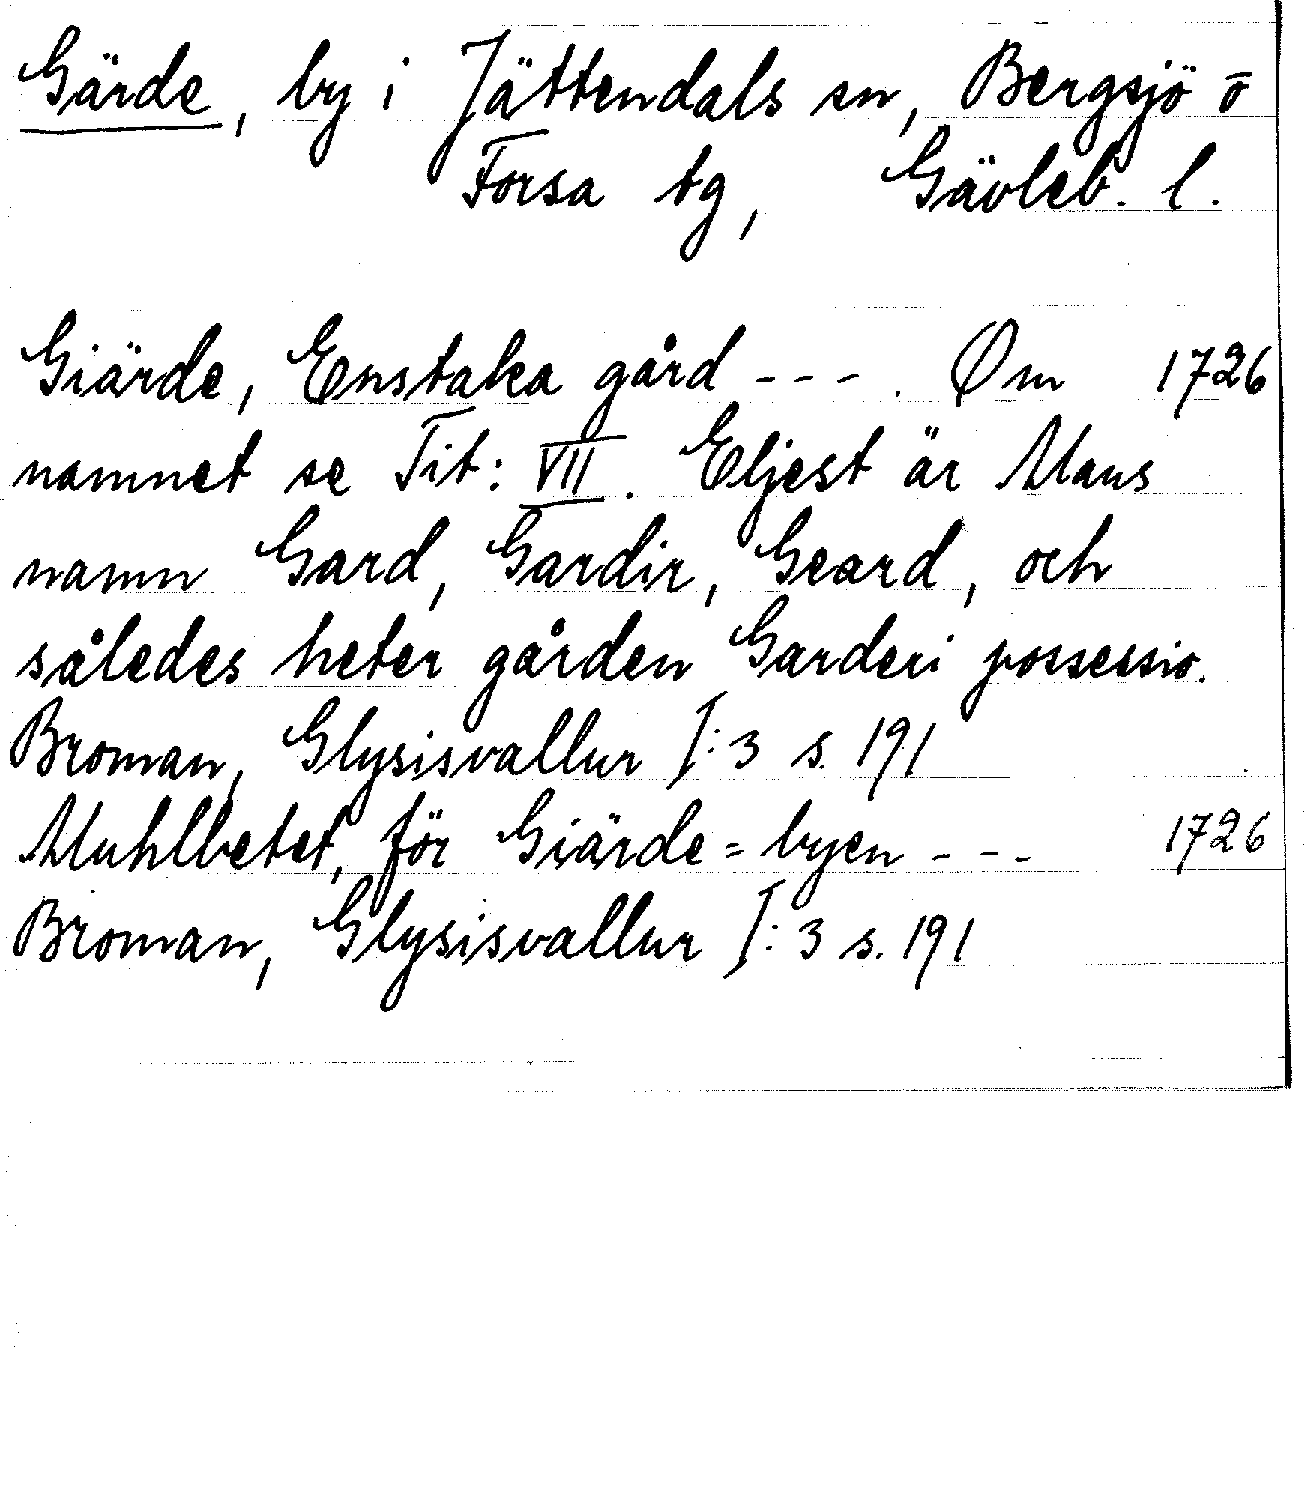 Gärde, by i Jättendals sn, Bergsjö o
Forsa tg, Gävleb. l.
Giärde, Enstaka gård - - - . Om 1726
namnet se Tit: VII. Eljest är Mans
namn Gard, Gardir, Geard, och
således heter gården Garderi possessio.
Broman, Glysisvallur I:3 s. 191
Muhlbetet, för Giärde=byen - - - 1726
Broman, Glysisvallur I:3 s. 191